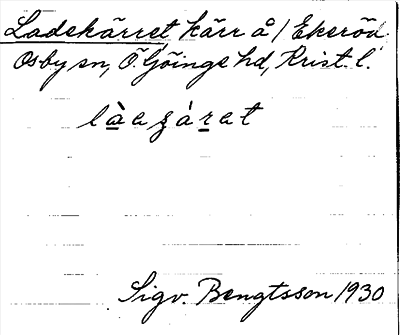 Ladekärret kärr å / Ekeröd
Osby sn, Ö. Göinge hd, Krist. l.
Sigv. Bengtsson 1930